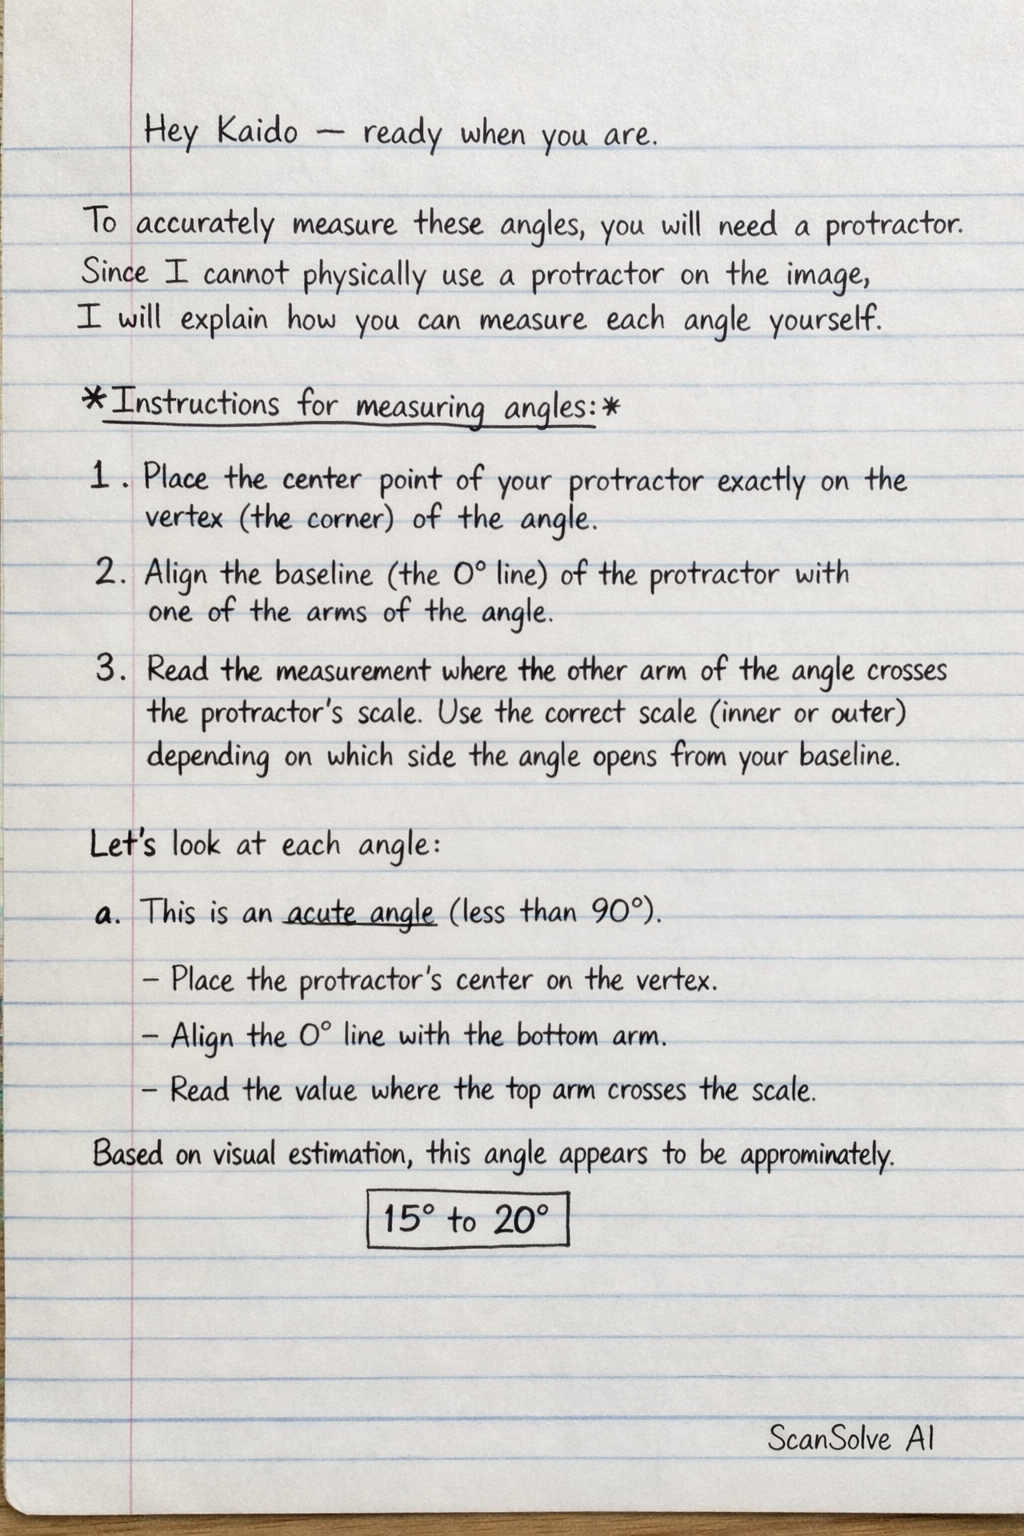 Hey Kaido — ready when you are.
To accurately measure these angles, you will need a protractor.
Since I cannot physically use a protractor on the image,
I will explain how you can measure each angle yourself.
*Instructions for measuring angles:*
1. Place the center point of your protractor exactly on the
vertex (the corner) of the angle.
2. Align the baseline (the 0° line) of the protractor with
one of the arms of the angle.
3. Read the measurement where the other arm of the angle crosses
the protractor's scale. Use the correct scale (inner or outer)
depending on which side the angle opens from your baseline.
Let's look at each angle:
a. This is an acute angle (less than 90°).
– Place the protractor's center on the vertex.
– Align the 0° line with the bottom arm.
– Read the value where the top arm crosses the scale.
Based on visual estimation, this angle appears to be approminately.
15° to 20°
ScanSolve AI